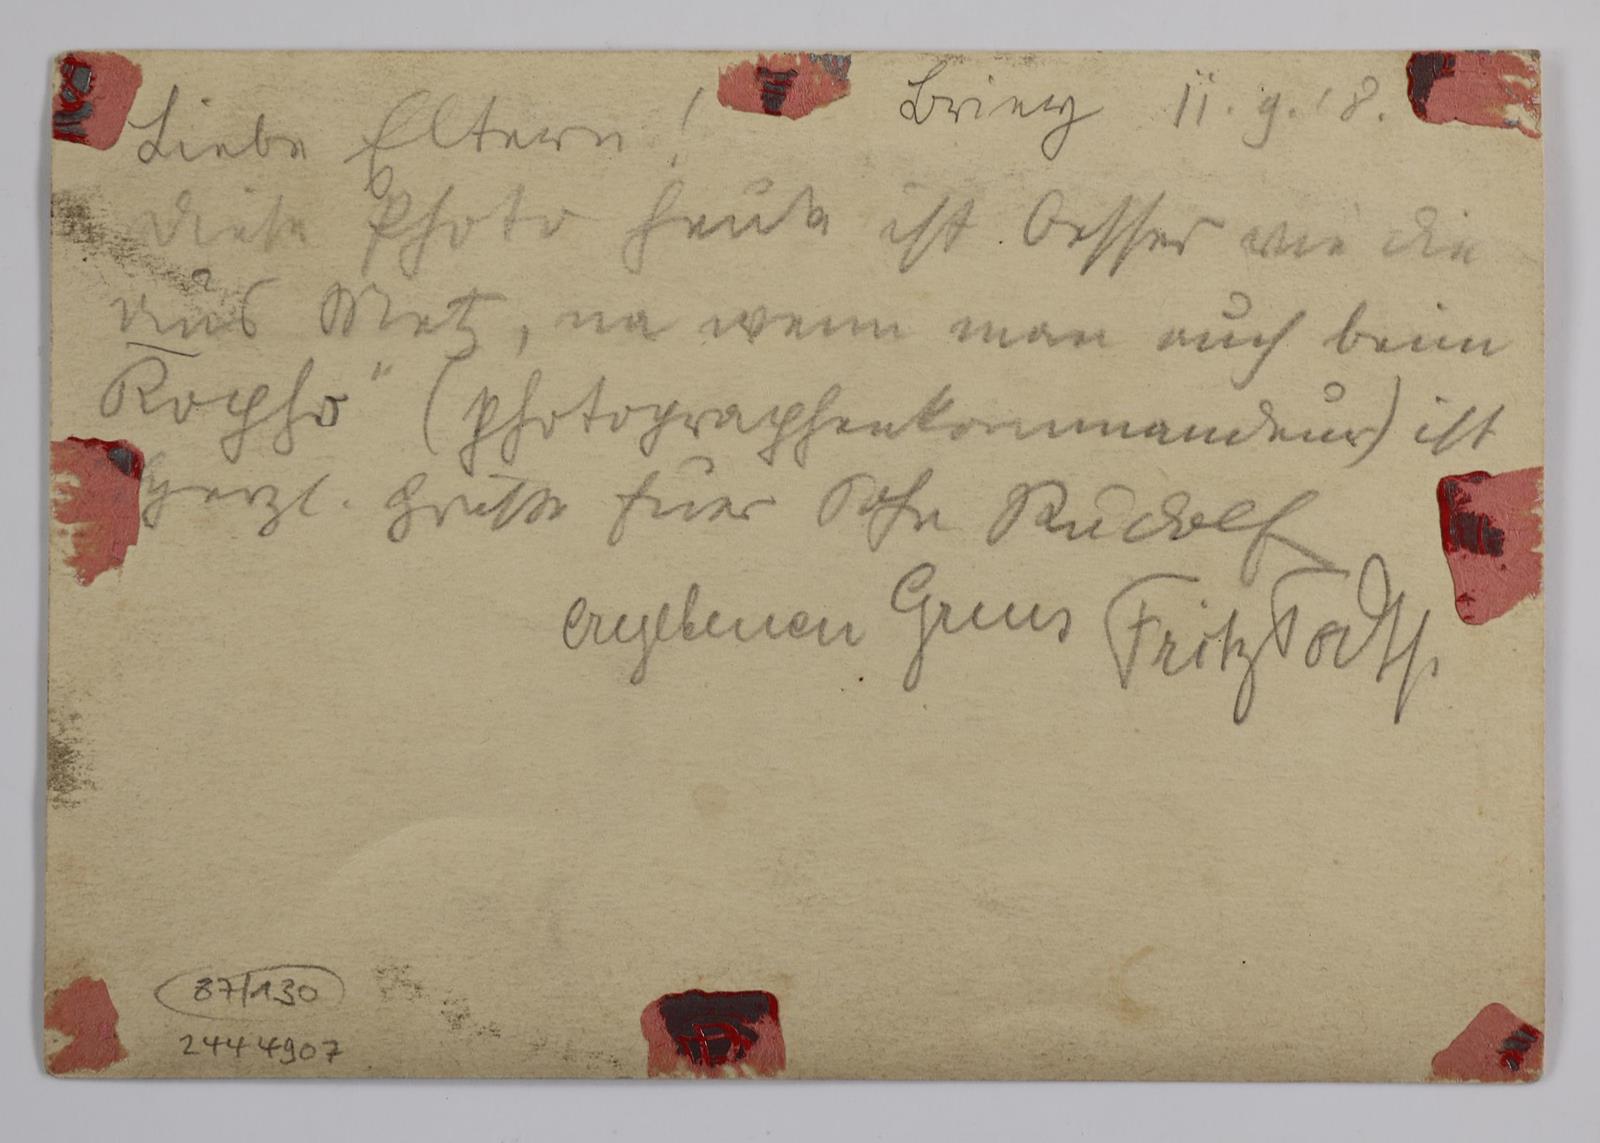 Briey 11.9.18.
Liebe Eltern!
Diese Photo heute ist besser wie die
aus Metz, na wenn man auch beim
Kopho" (Photographenkommandeur) ist
Herzl. Grüsse Euer Sohn Rudolf
ergebenen Gruss Fritz
87/130
2444907